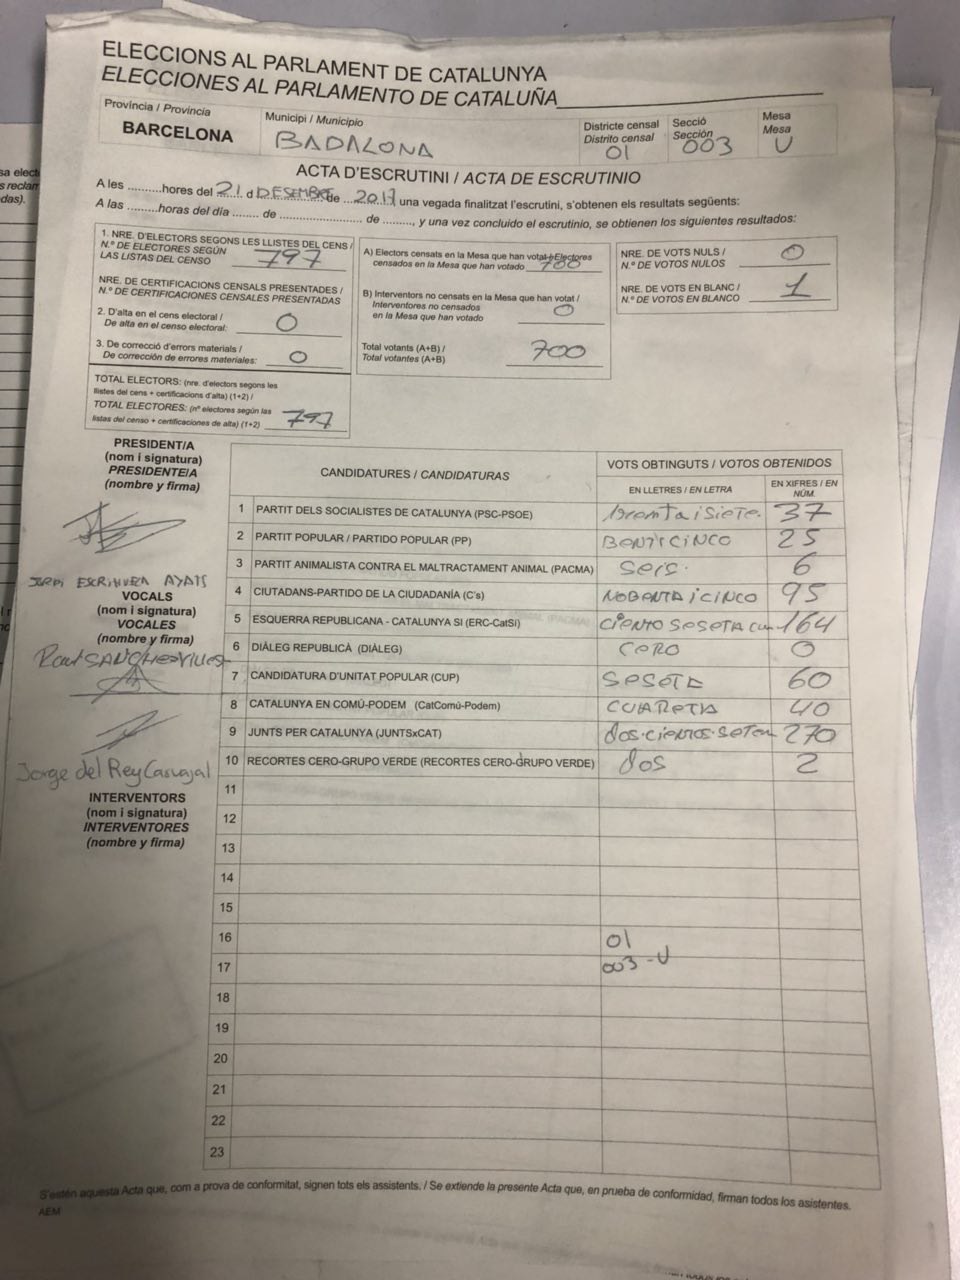 ELECCIONS AL PARLAMENT DE CATALUNYA
ELECCIONES AL PARLAMENTO DE CATALUÑA
Província / Provincia
BARCELONA
Municipi / Municipio
BADALONA
Districte censal
Distrito censal
01
Secció
Sección
003
Mesa
Mesa
U
ACTA D'ESCRUTINI / ACTA DE ESCRUTINIO
A les ..........hores del 21 d DESEMBRE de 2017, una vegada finalitzat l'escrutini, s'obtenen els resultats següents:
A las .........horas del día ....... de ...................... de ........, y una vez concluido el escrutinio, se obtienen los siguientes resultados:
1. NRE. D'ELECTORS SEGONS LES LLISTES DEL CENS /
N.º DE ELECTORES SEGÚN
LAS LISTAS DEL CENSO 797
NRE. DE CERTIFICACIONS CENSALS PRESENTADES /
N.º DE CERTIFICACIONES CENSALES PRESENTADAS
2. D'alta en el cens electoral /
De alta en el censo electoral: 0
3. De correcció d'errors materials /
De corrección de errores materiales: 0
TOTAL ELECTORS: (nre. d'electors segons les
llistes del cens + certificacions d'alta) (1+2) /
TOTAL ELECTORES: (nº electores según las
listas del censo + certificaciones de alta) (1+2) 797
A) Electors censats en la Mesa que han votat / Electores
censados en la Mesa que han votado 700
B) Interventors no censats en la Mesa que han votat /
Interventores no censados
en la Mesa que han votado 0
Total votants (A+B) /
Total votantes (A+B) 700
NRE. DE VOTS NULS /
N.º DE VOTOS NULOS 0
NRE. DE VOTS EN BLANC /
N.º DE VOTOS EN BLANCO 1
PRESIDENT/A
(nom i signatura)
PRESIDENTE/A
(nombre y firma)
JORDI ESCRIHUELA AYATS
VOCALS
(nom i signatura)
VOCALES
(nombre y firma)
Jorge del Rey Carvajal
INTERVENTORS
(nom i signatura)
INTERVENTORES
(nombre y firma)
CANDIDATURES / CANDIDATURAS
VOTS OBTINGUTS / VOTOS OBTENIDOS
EN LLETRES / EN LETRA
EN XIFRES / EN
NÚM.
1 PARTIT DELS SOCIALISTES DE CATALUNYA (PSC-PSOE) 37
2 PARTIT POPULAR / PARTIDO POPULAR (PP) BENTICINCO 25
3 PARTIT ANIMALISTA CONTRA EL MALTRACTAMENT ANIMAL (PACMA) SEIS. 6
4 CIUTADANS-PARTIDO DE LA CIUDADANÍA (C's) NOBENTA i CINCO 95
5 ESQUERRA REPUBLICANA - CATALUNYA SI (ERC-CatSí) CIENTO SESETA 164
6 DIÀLEG REPUBLICÀ (DIÀLEG) CERO 0
7 CANDIDATURA D'UNITAT POPULAR (CUP) SESETA 60
8 CATALUNYA EN COMÚ-PODEM (CatComú-Podem) CUARETA 40
9 JUNTS PER CATALUNYA (JUNTSxCAT) dos.cientos.seten 270
10 RECORTES CERO-GRUPO VERDE (RECORTES CERO-GRUPO VERDE) dos 2
11
12
13
14
15
16 01
17 003 - U
18
19
20
21
22
23
S'estén aquesta Acta que, com a prova de conformitat, signen tots els assistents. / Se extiende la presente Acta que, en prueba de conformidad, firman todos los asistentes.
AEM